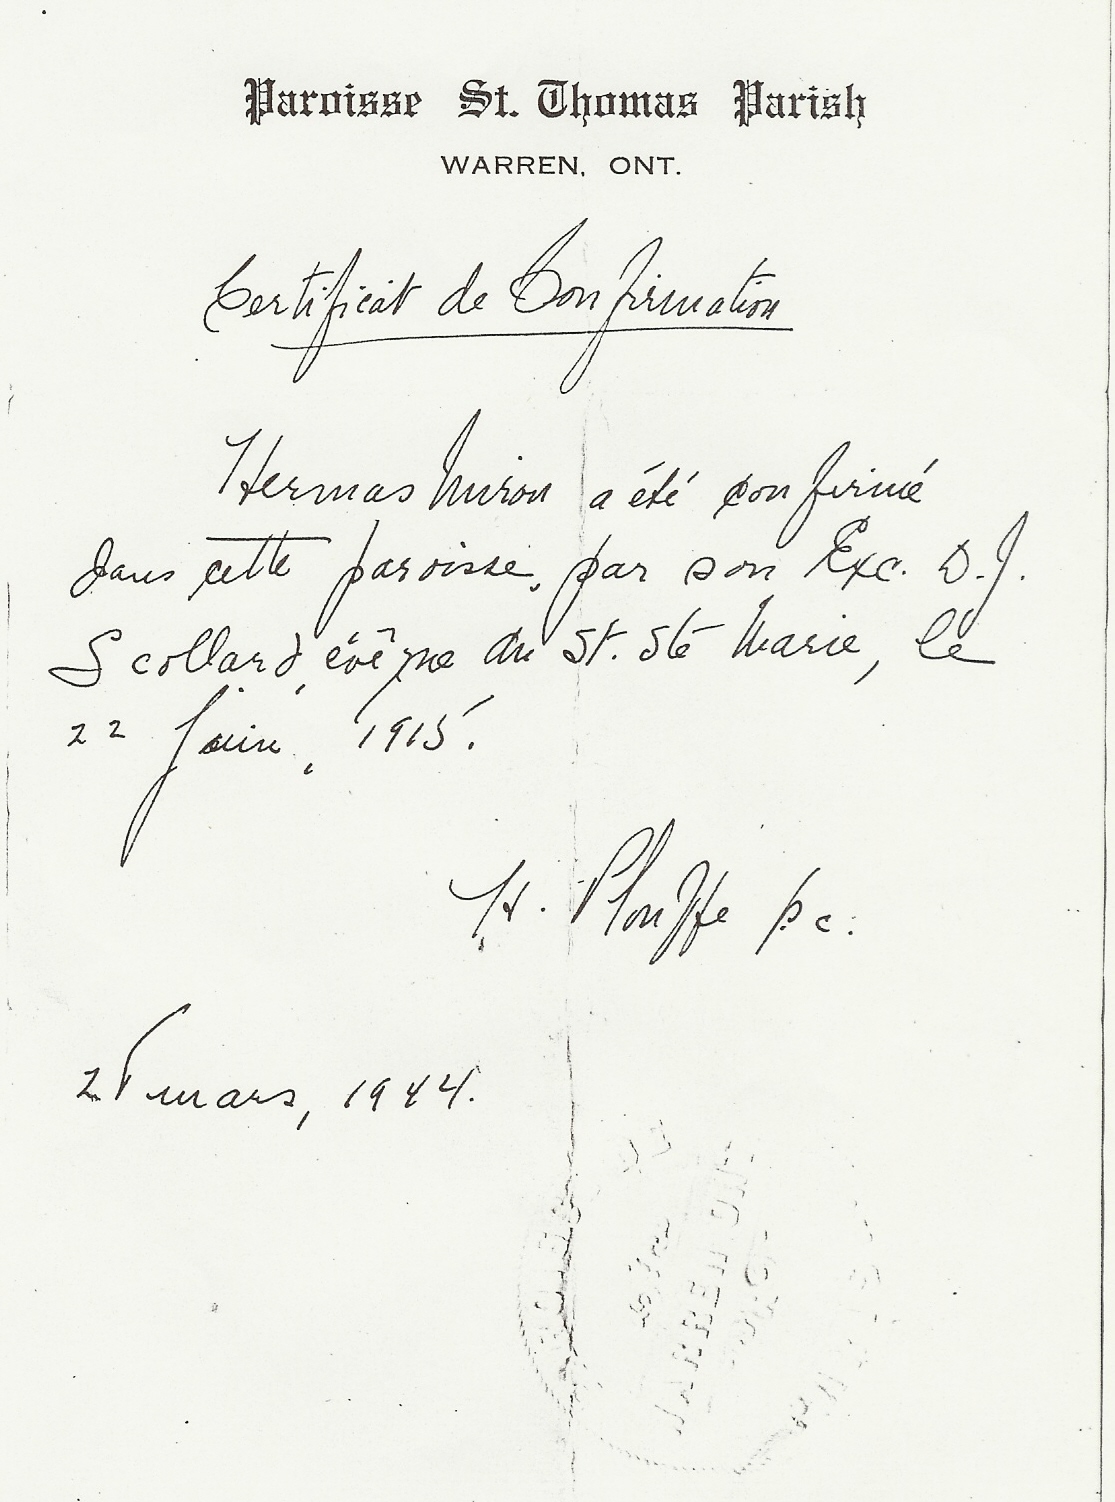 Paroisse St. Thomas Parish
WARREN, ONT.
Certificat de Confirmation
Hermas Miron a été confirmé
dans cette paroisse, par son Exc. D.J.
Scollard, évêque du St. Ste Marie, le
22 Juin, 1915.
H. Plouffe p c.
mars, 1944.